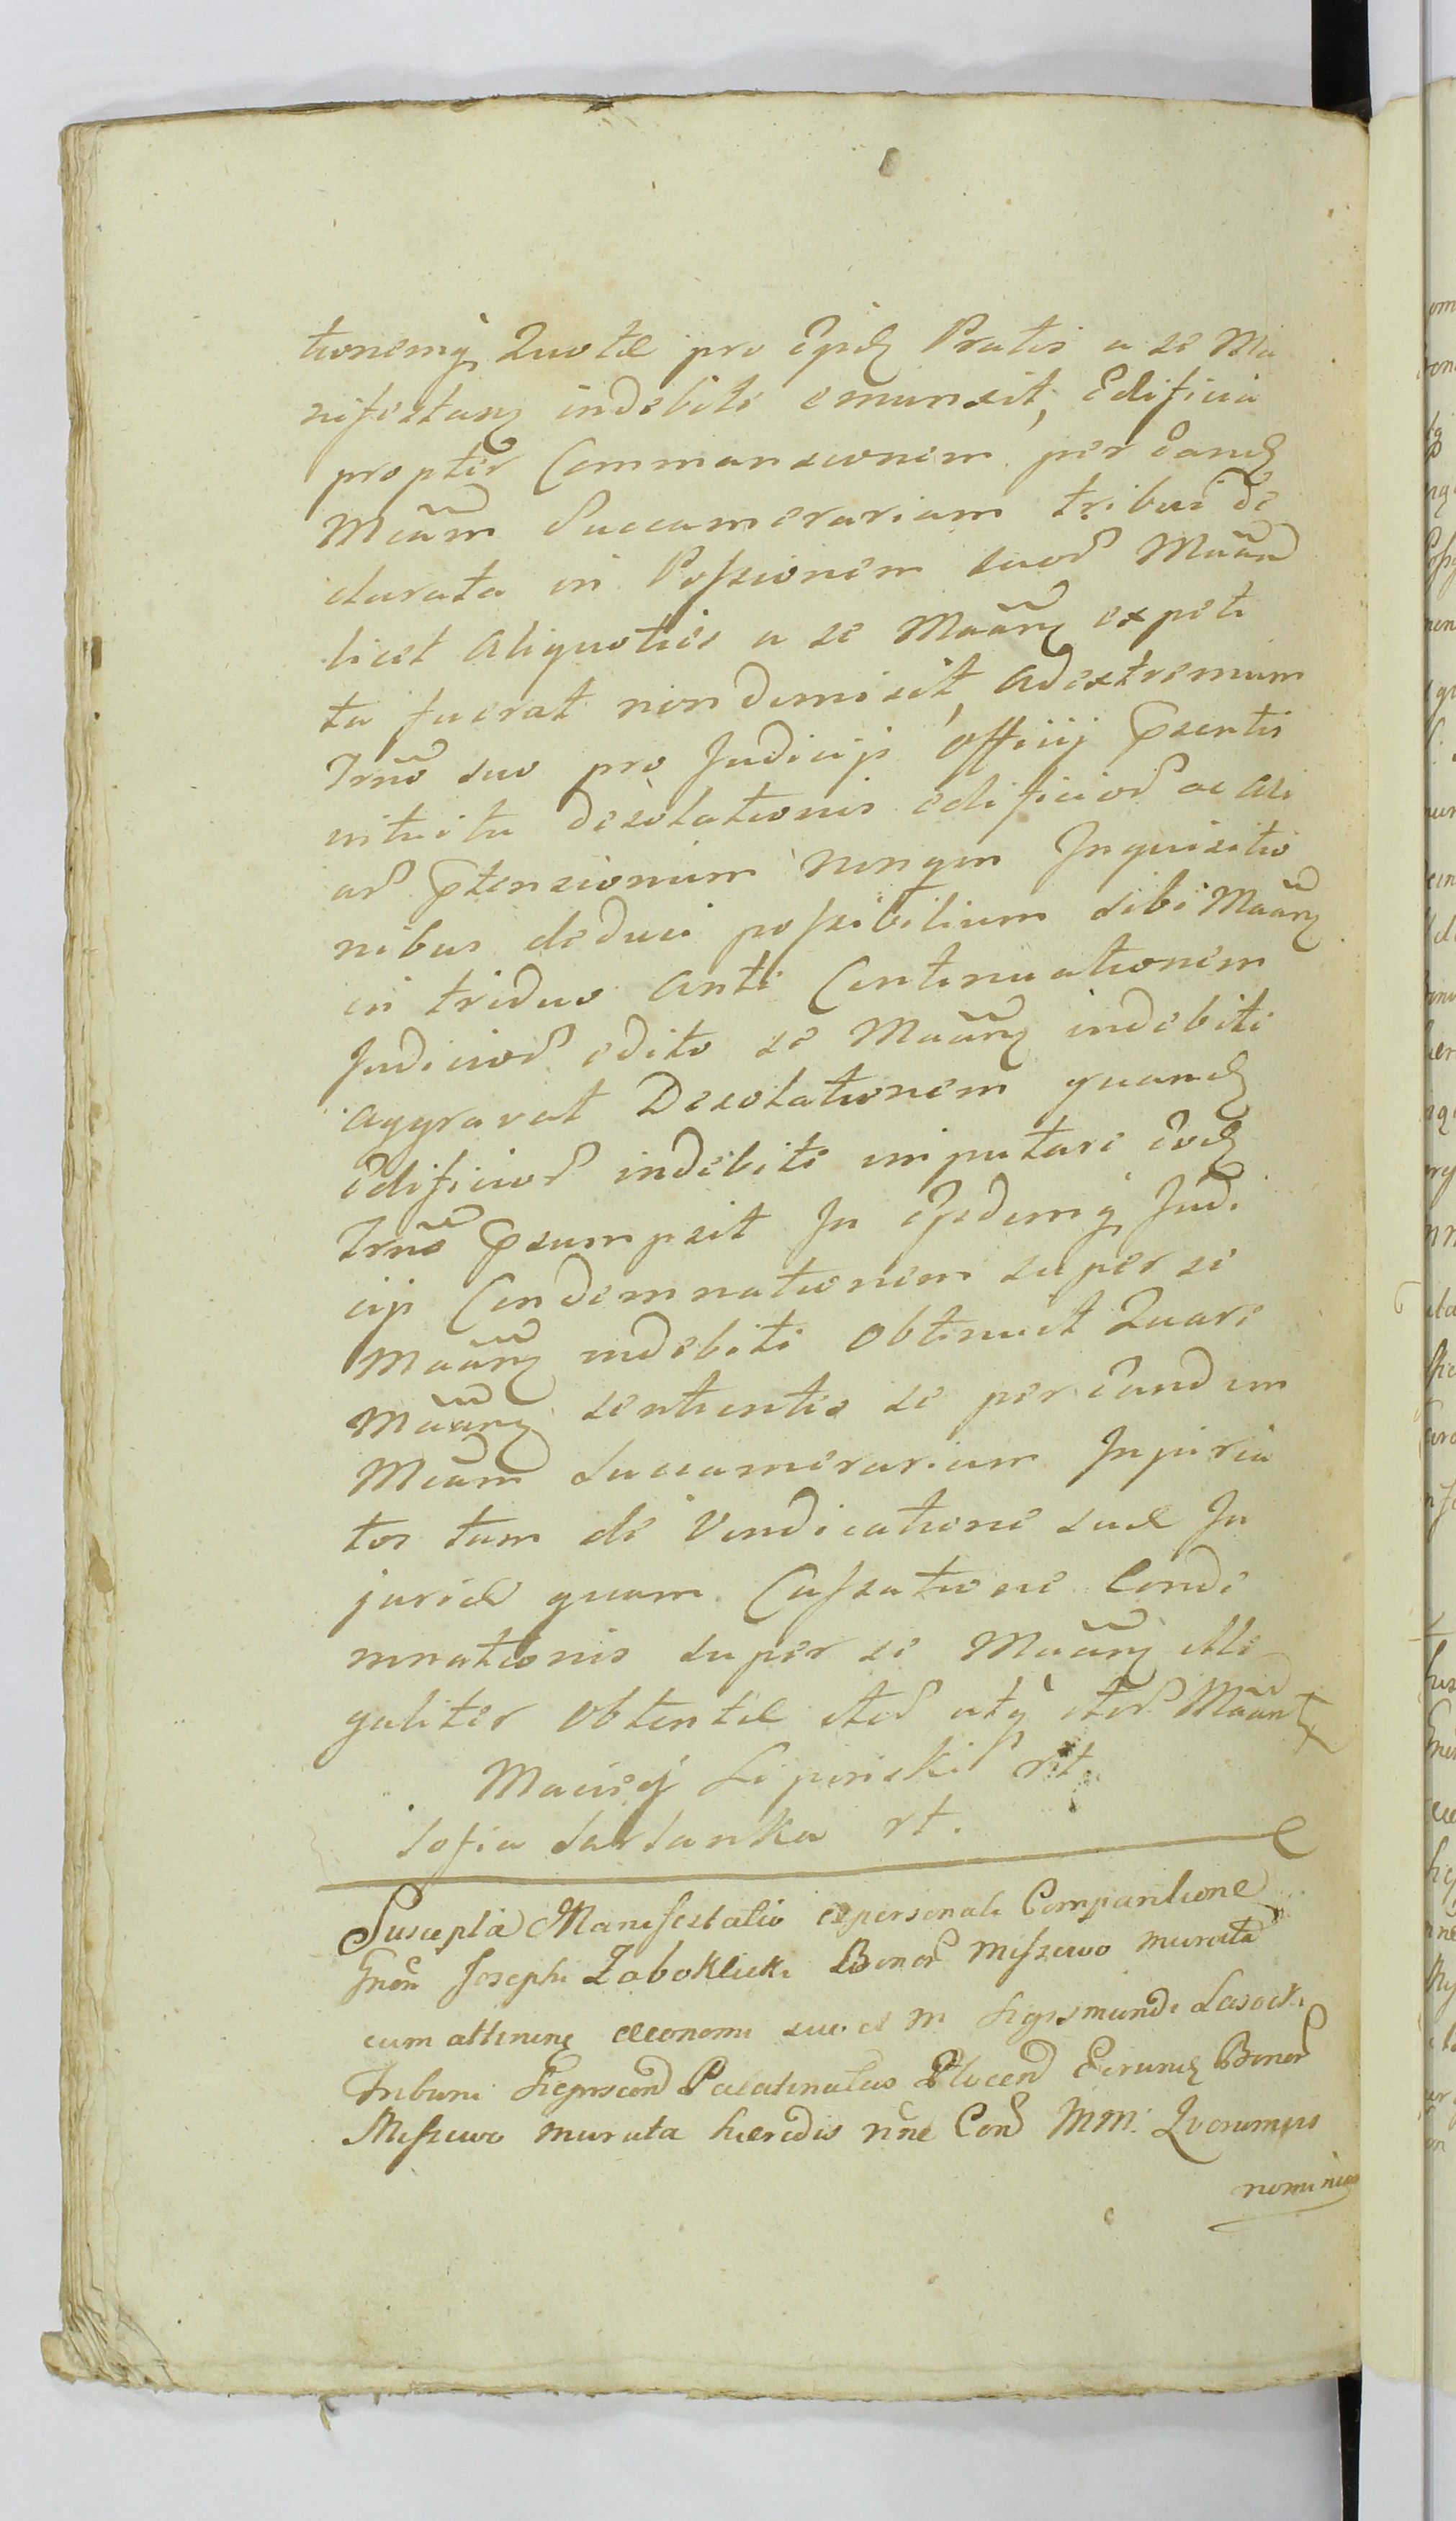 tionemq Quotæ pro ejsd Pratis a se Ma
nifestan indebite emunxit, Edificia
propter Commansionem per eand
Mcam Succamerariam tribui de
clarata in Possionem suor Maan
licet aliquoties a se Maan expeti
ta fuerat non dimisit, ad extremum
Trno suo pro Judicijs Officij Psentis
intuitu desolationis edificior ac ali
ar Ptensionum non qm Inquisitio
nibus deduci possibilium sibi Maan
in triduo ante Continuationem
Judicior edito se Maan indebite
aggravat Desolationem quand
Edificior indebite imputare eod
Trno Psumpsit In ejsdemq Judi
cijs Condemnationem super se
Maan indebite obtinuit Quare
Maan sentientes se per eandem
Mcam Succamerariam Injuria
tos tam de Vindicatione suæ In
juriæ quam Cassatione Conde
mnationis super se Maan ille
galiter obtentæ iter atq iter Maant
Maciej Lipinski rt
Sofia rt.
Suscepta Manifestatio expersonali Comparitione
Gnen Josephi Zaboklicki Bonor Miszewo murata
cum attinenc œconomi suo et M Sigismundi Lasocki
Tribuni Palatinatus Plocen Eorund Bonor
Miszewo murata hæredis nne Con MM. Quorumvis
nominiu